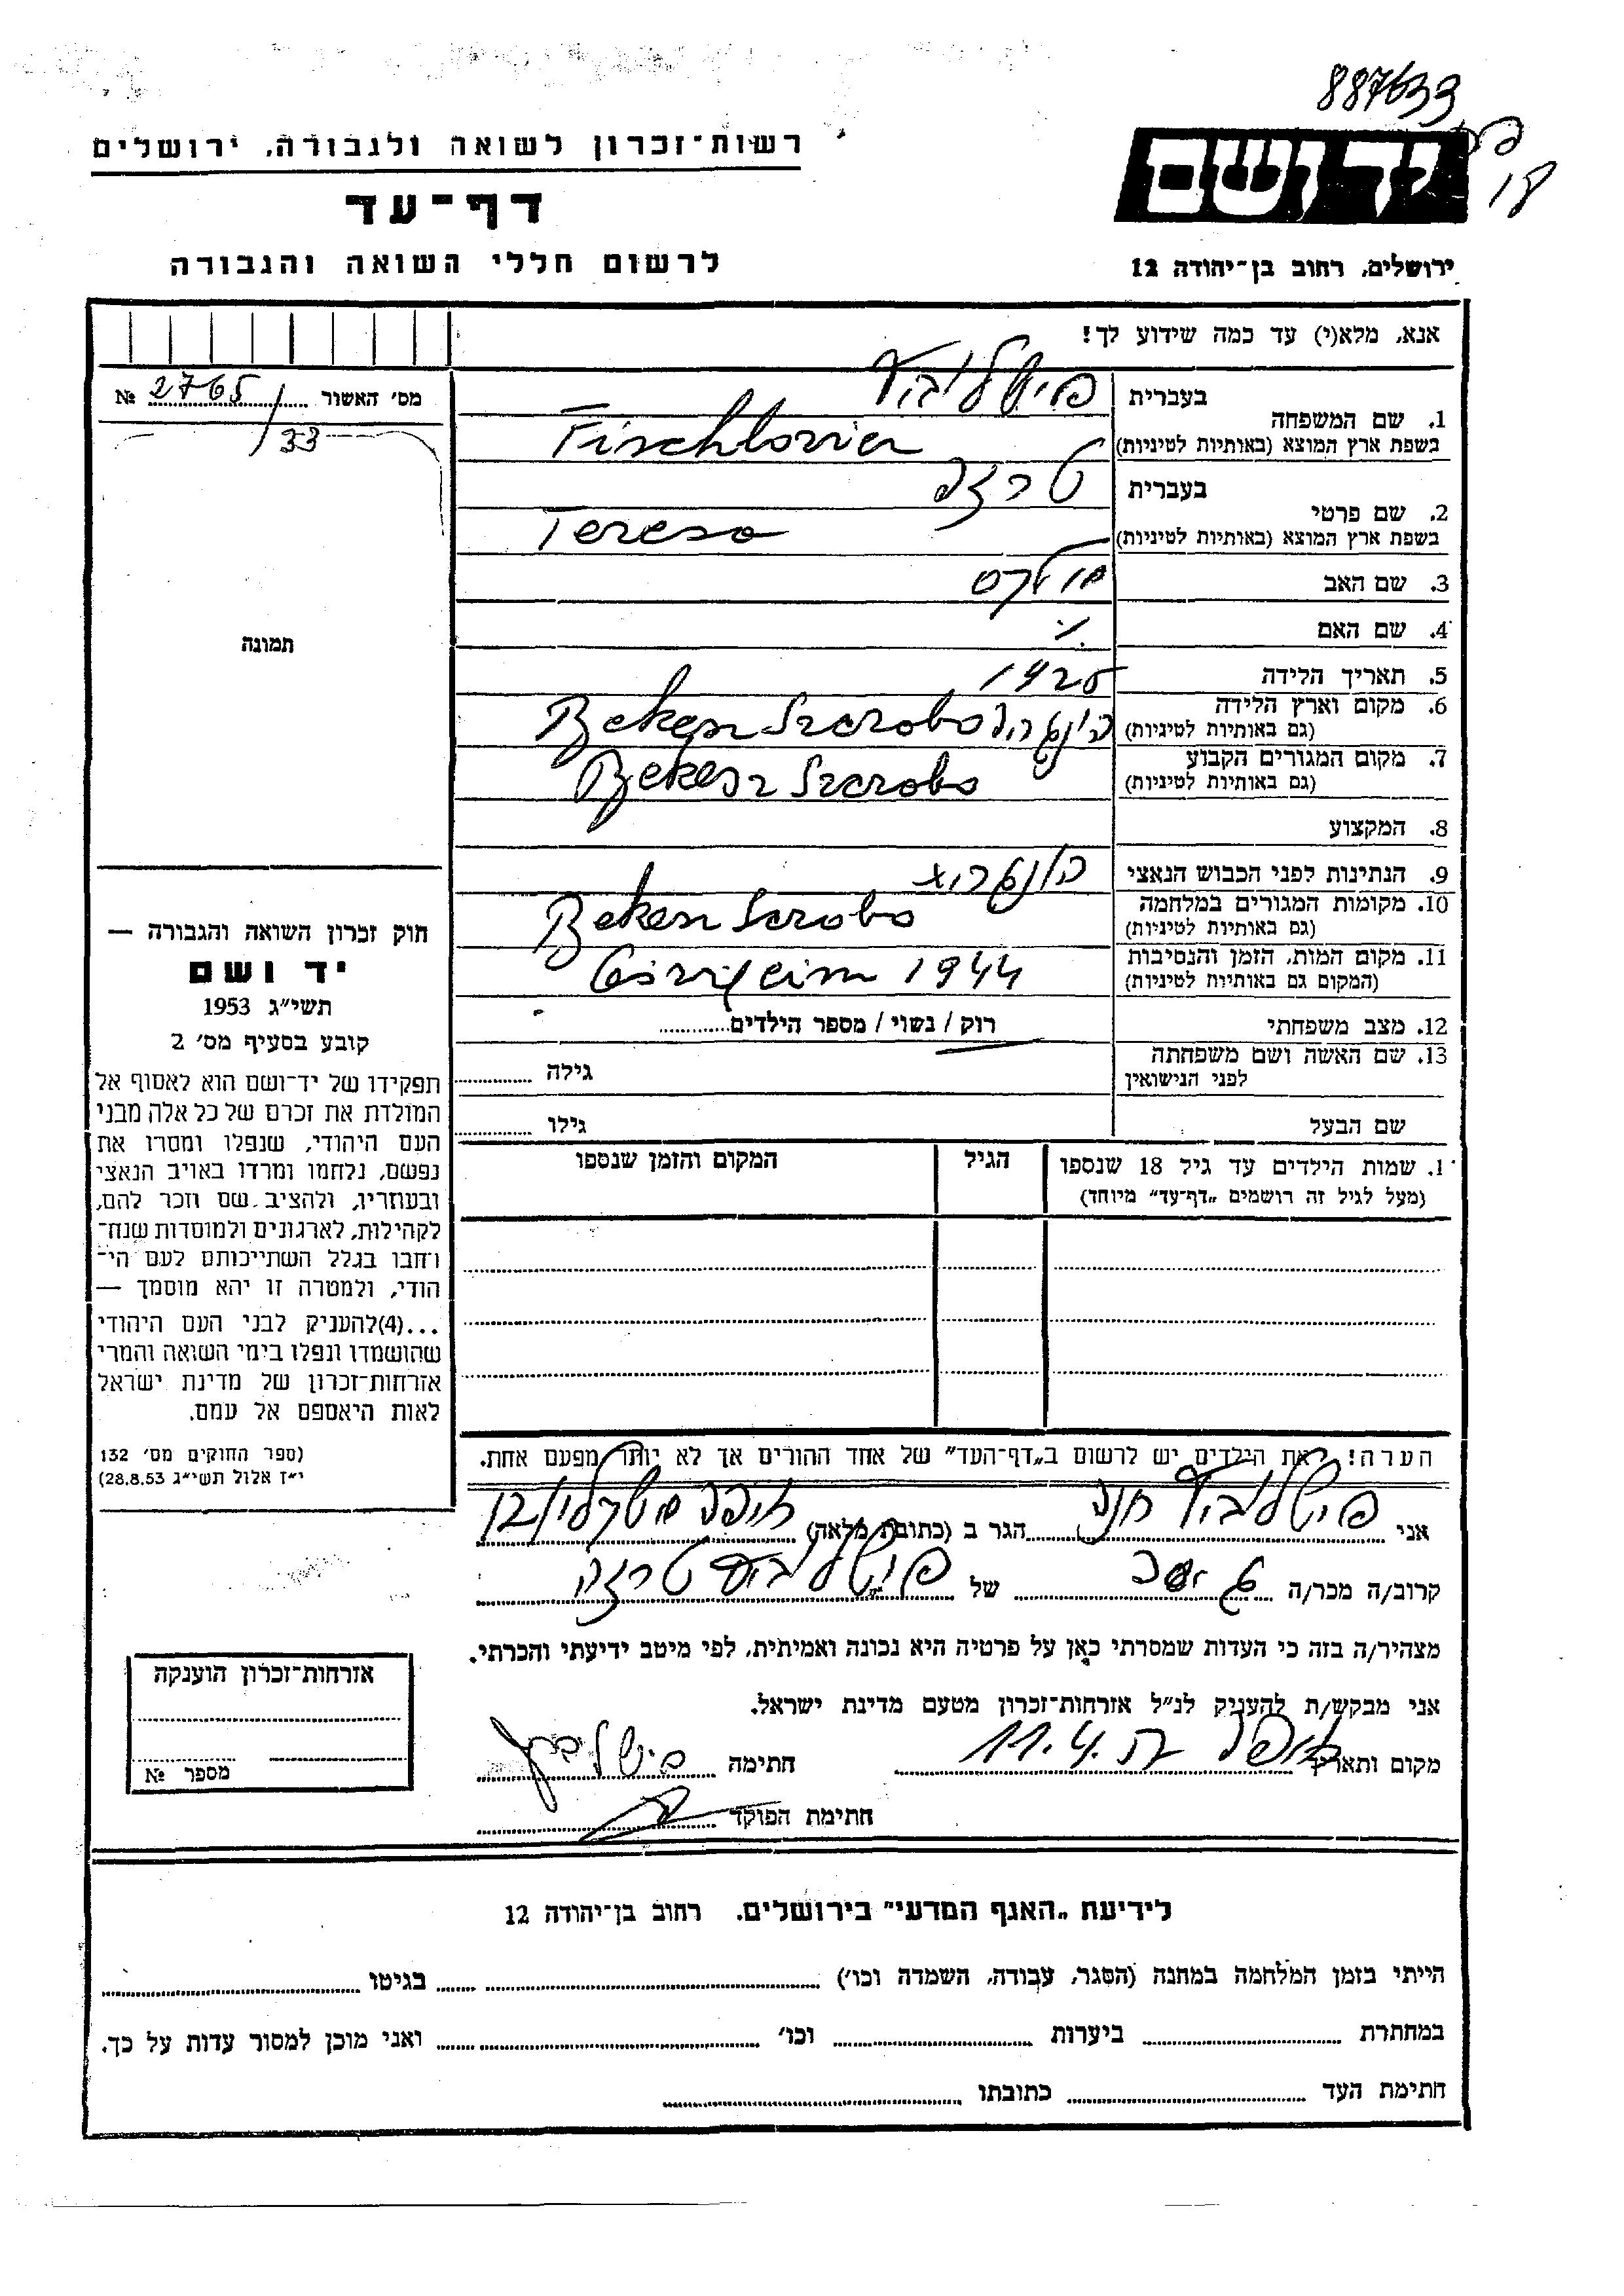 887633
רשות־זכרון לשואה ולגבורה, ירושלים
יד ושם
דף־עד
לרשום חללי השואה והגבורה
ירושלים, רחוב בן־יהודה 12
אנא, מלא(י) עד כמה שידוע לך!
מס׳ האשור № 2765/33
תמונה
1. שם המשפחה בעברית
בשפת ארץ המוצא (באותיות לטיניות)
2. שם פרטי בעברית טרזה
בשפת ארץ המוצא (באותיות לטיניות) Tereso
3. שם האב
4. שם האם
5. תאריך הלידה 1925
6. מקום וארץ הלידה
(גם באותיות לטיניות)
7. מקום המגורים הקבוע
(גם באותיות לטיניות)
8. המקצוע
9. הנתינות לפני הכבוש הנאצי
10. מקומות המגורים במלחמה
(גם באותיות לטיניות)
11. מקום המות, הזמן והנסיבות 1944
(המקום גם באותיות לטיניות)
12. מצב משפחתי רוק / נשוי / מספר הילדים
13. שם האשה ושם משפחתה
לפני הנישואין גילה
שם הבעל גילו
1. שמות הילדים עד גיל 18 שנספו הגיל המקום והזמן שנספו
(מעל לגיל זה רושמים „דף־עד״ מיוחד)
חוק זכרון השואה והגבורה —
יד ושם
תשי״ג 1953
קובע בסעיף מס׳ 2
תפקידו של יד־ושם הוא לאסוף אל
המולדת את זכרם של כל אלה מבני
העם היהודי, שנפלו ומסרו את
נפשם, נלחמו ומרדו באויב הנאצי
ובעוזריו, ולהציב שם וזכר להם,
לקהילות, לארגונים ולמוסדות שנח־
רבו בגלל השתייכותם לעם הי־
הודי, ולמטרה זו יהא מוסמך —
...(4)להעניק לבני העם היהודי
שהושמדו ונפלו בימי השואה והמרי
אזרחות־זכרון של מדינת ישראל
לאות היאספם אל עמם.
(ספר החוקים מס׳ 132
י״ז אלול תשי״ג 28.8.53)
הערה: את הילדים יש לרשום ב„דף־העד״ של אחד ההורים אך לא יותר מפעם אחת.
אני חנה הגר ב (כתובת מלאה)
קרוב/ה מכר/ה של טרזה
מצהיר/ה בזה כי העדות שמסרתי כאן על פרטיה היא נכונה ואמיתית, לפי מיטב ידיעתי והכרתי.
אני מבקש/ת להעניק לנ״ל אזרחות־זכרון מטעם מדינת ישראל.
מקום ותאריך 11.4. חתימה
חתימת הפוקד
אזרחות־זכרון הוענקה
מספר №
לידיעת „האגף המדעי״ בירושלים, רחוב בן־יהודה 12
הייתי בזמן המלחמה במחנה (הסגר, עבודה, השמדה וכו׳) בגיטו
במחתרת ביערות וכו׳ ואני מוכן למסור עדות על כך.
חתימת העד כתובתו